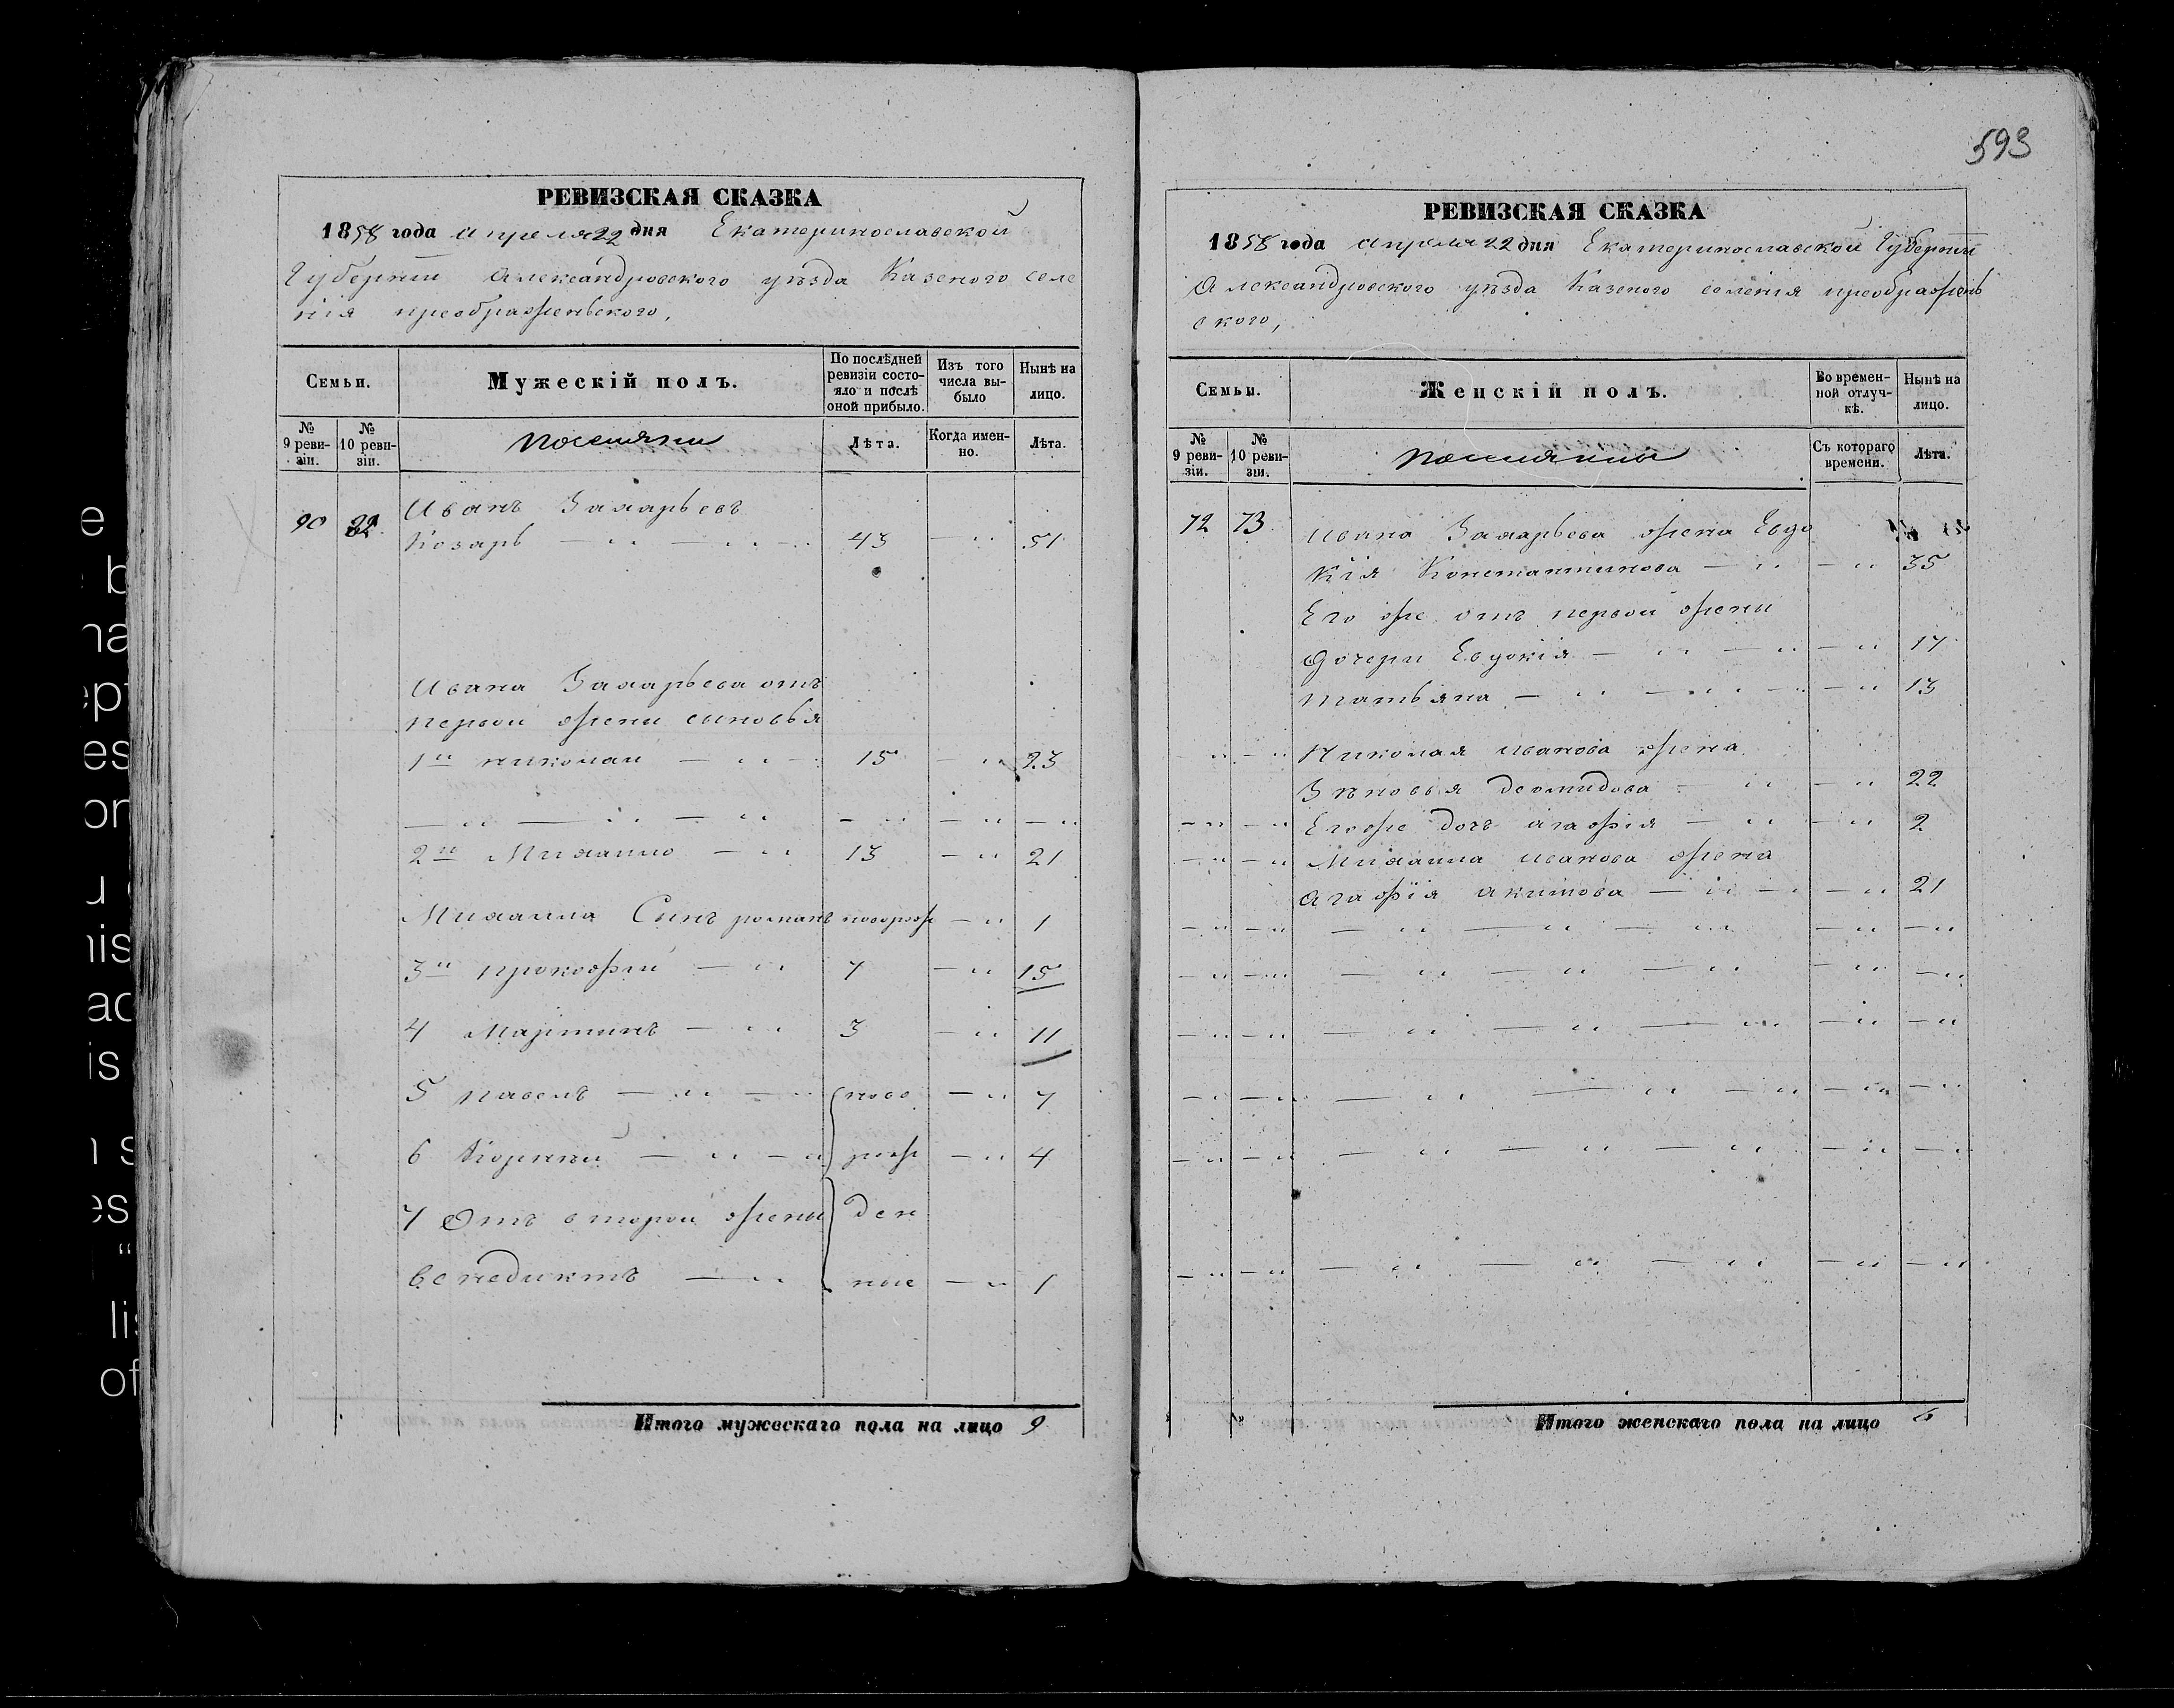 593
РЕВИЗСКАЯ СКАЗКА
1858 года апреля 22 дня Екатеринославской
Губернии Александровского уѣзда Казеного селе
нія преобраֲженьского,
Семьи.
Мужескій полъ.
По послѣдней ревизіи состояло и послѣ оной прибыло.
Изъ того числа выбыло
Нынѣ на лицо.
№ 9 ревизіи.
№ 10 ревизіи.
Поселяни
Лѣта.
Когда именно.
Лѣта.
90
Иванъ Захарьевъ
Козарь — " — " — 43 — " 51
Ивана Захарьева отъ
первой жени сыновья
1й николай — " — 15 — " 23
— " — " — " — " — " — "
2й Михаило — " 13 — " 21
Михаила Синъ романъ новорож — " 1
3й прокофій — " 7 — " 15
4 Мартинъ — " 3 — " 11
5 павелъ — " — " ново — " 7
6 Корній — " — " рож — " 4
7 Отъ второй жены ден
венедиктъ — " ние — " 1
Итого мужескаго пола на лицо 9
РЕВИЗСКАЯ СКАЗКА
1858 года апреля 22 дня Екатеринославской Губернии
Александровского уѣзда Казеного селенія преображень
ского,
Семьи.
Женскій полъ.
Во временной отлучкѣ.
Нынѣ на лицо.
№ 9 ревизіи.
№ 10 ревизіи.
Съ котораго времени.
Лѣта.
72 73 Ивана Захарьева жена Евдо
кія Константинова — " — " 35
Его же отъ первой жени
дочери Евдокія — " — " — " 17
татьяна — " — " — " 13
— " — " Николая иванова жена
Зѣновья деомидова — " — " 22
— " — " Егоже дочь агафія — " — " 2
— " — " Михаила иванова жена
агафія акимова — " — " — " 21
— " — " — " — " — " — " — "
— " — " — " — " — " — " — "
— " — " — " — " — " — " — "
— " — " — " — " — " — " — "
— " — " — " — " — " — " — "
— " — " — " — " — " — " — "
Итого женскаго пола на лицо 6